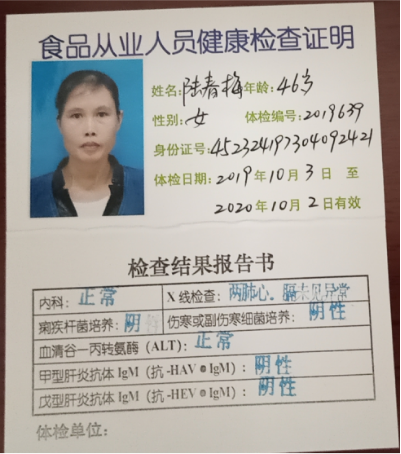 食品从业人员健康检查证明
姓名: 陆春梅 年龄: 46岁
性别: 女 体检编号: 2019639
身份证号: 452324197304092421
体检日期: 2019年10月3日 至
2020年10月2日有效
检查结果报告书
内科: 正常 X线检查: 两肺心。膈未见异常
痢疾杆菌培养: 阴性 伤寒或副伤寒细菌培养: 阴性
血清谷一丙转氨酶 (ALT): 正常
甲型肝炎抗体 IgM (抗-HAV IgM): 阴性
戊型肝炎抗体 IgM (抗-HEV IgM): 阴性
体检单位: